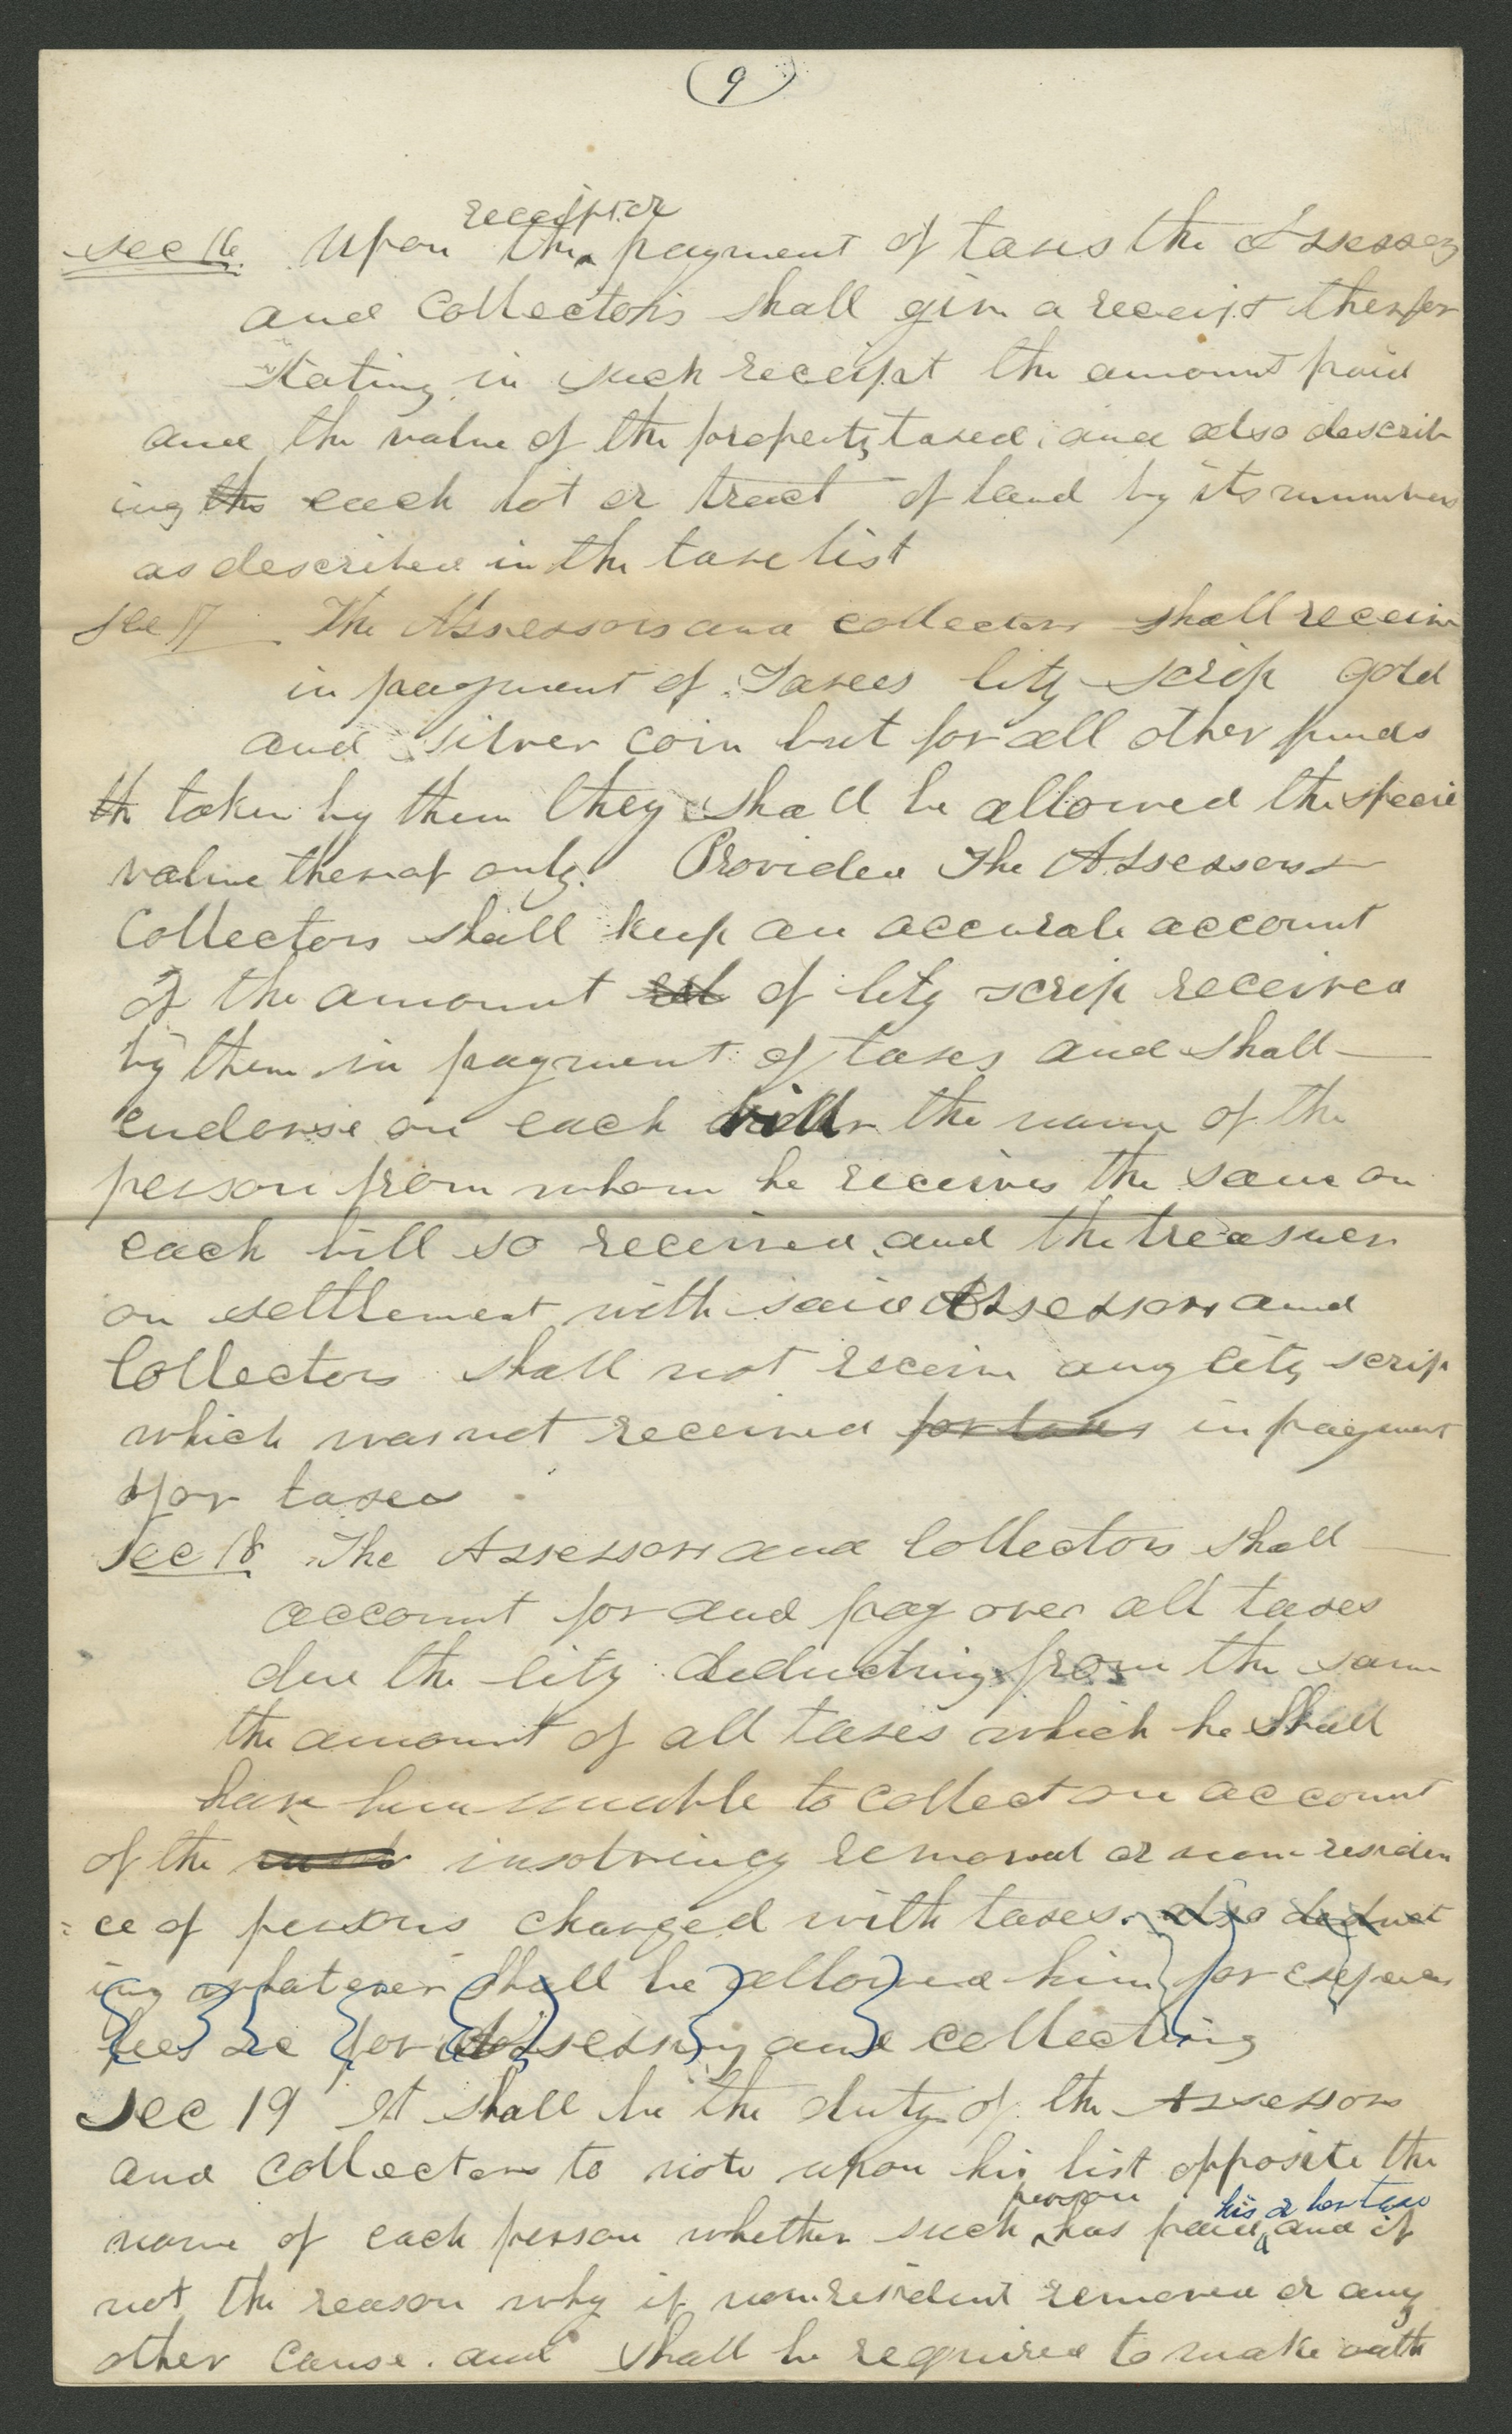 9
receipt or
Sec 16. Upon the payment of taxes the Assessors
and Collectors shall give a receipt therefor
stating in such receipt the amount paid
and the value of the property taxed, and also describ
ing the each lot or tract of land by its numbers
as described in the taxe list
Sec 17 The Assessors and collectors shall receive
in payment of Taxes City scrip gold
and silver coin but for all other funds
th taken by them they shall be allowed the specie
value thereof only. Provided The Assessors &
Collectors shall keep an accurate account
of the amount of City scrip received
by them in payment of taxes and shall
endorse on each bill the name of the
person from whom he receives the same on
each bill so received and the treasurer
on settlement with said Assessors and
Collectors shall not receive any City scrip
which was not received for taxes in payment
for taxes
Sec 18 The Assessors and Collectors shall
account for and pay over all taxes
due the City deducting from the same
the amount of all taxes which he shall
have been unable to collect on account
of the insolvency removal or non-residen
ce of persons charged with taxes. also deduct
ing whatever shall be allowed him for expenses
fees &c for Assessing and collecting
Sec 19 It shall be the duty of the Assessors
and collectors to note upon his list opposite the
person his or her tax
name of each person whether such has paid and if
not the reason why if nonresident removed or any
other cause. and shall be required to make oath